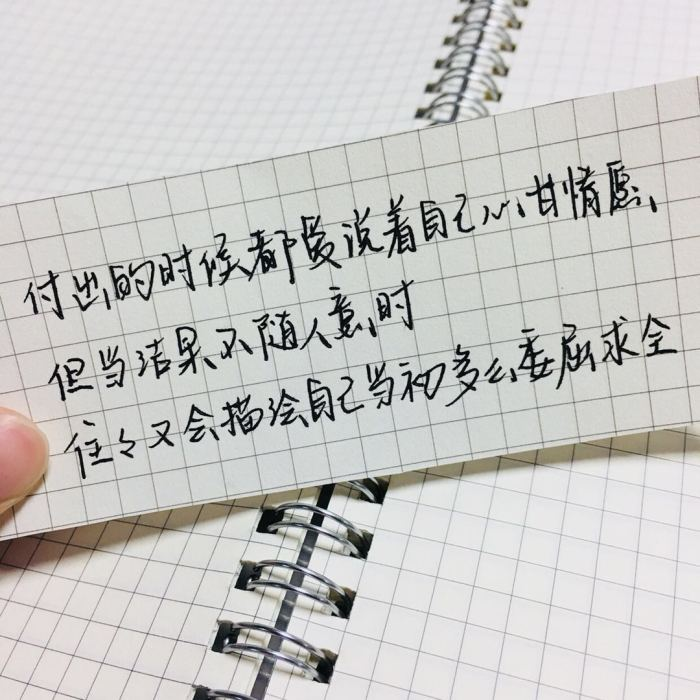 付出的时候都爱说着自己心甘情愿
但当结果不随人意时
往々又会描绘自己当初多么委屈求全